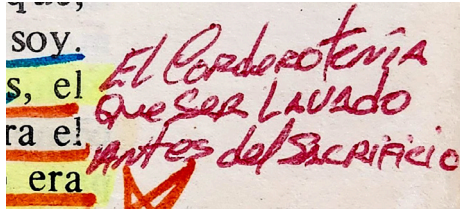 que,
soy.
s, el
ra el
era
El Cordero tenía
que ser lavado
antes del sacrificio